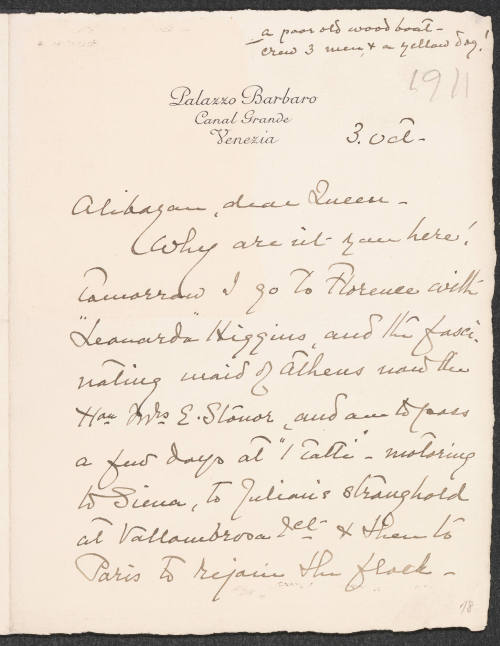 a poor old wood boat -
crew 3 men, & a yellow dog!
1911
Palazzo Barbaro
Canal Grande
Venezia
3. Oct -
dear Queen -
Why are n't you here!
Tomorrow I go to Florence with
"Leonardo" Higgins, and the fasci-
nating maid of Athens now the
Hon Mrs E. Stonor, and am to pass
a few days at "I Tatti" - motoring
to Siena, to Julian's stronghold
at Vallombrosa &ct - & then to
Paris to rejoin the flock -
78